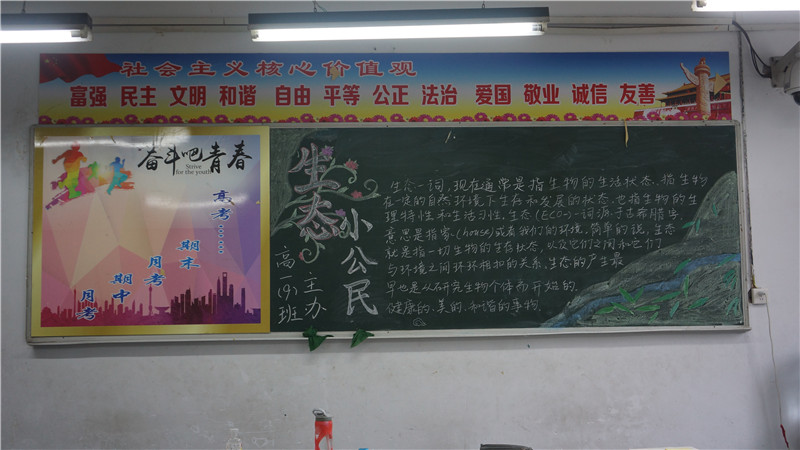 社会主义核心价值观
富强 民主 文明 和谐 自由 平等 公正 法治 爱国 敬业 诚信 友善
奋斗吧青春
Strive
for the youth
高考……
期末
月考
期中
月考
生态
小公民
高一(9)班
主办
生态一词,现在通常是指生物的生活状态.指生物
在一定的自然环境下生存和发展的状态,也指生物的生
理特性和生活习性.生态(ECO-)一词源于古希腊字,
意思是指家(house)或者我们的环境.简单的说,生态
就是指一切生物的生存状态,以及它们之间和它们
与环境之间环环相扣的关系.生态的产生最
早也是从研究生物个体而开始的.
健康的、美的、和谐的事物.